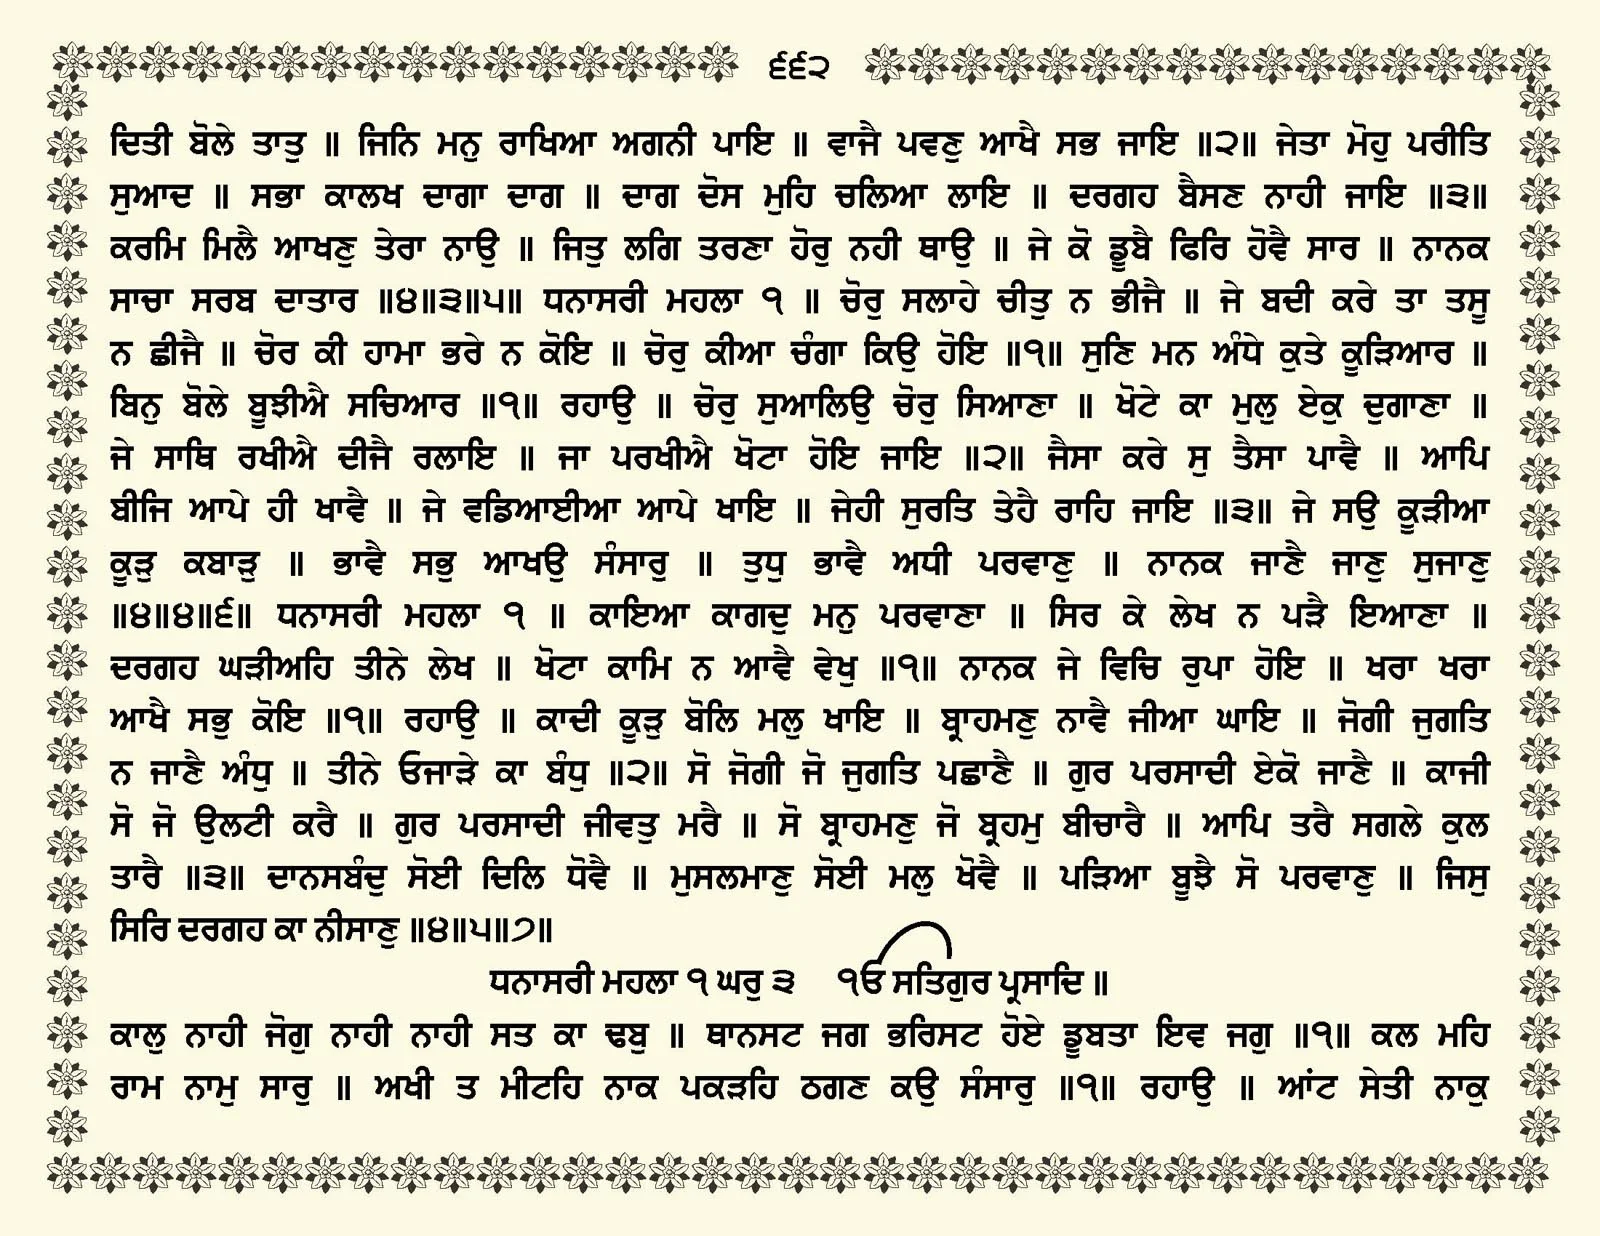 ੬੬੨
ਦਿਤੀ ਬੋਲੇ ਤਾਤੁ ॥ ਜਿਨਿ ਮਨੁ ਰਾਖਿਆ ਅਗਨੀ ਪਾਇ ॥ ਵਾਜੈ ਪਵਣੁ ਆਖੈ ਸਭ ਜਾਇ ॥੨॥ ਜੇਤਾ ਮੋਹੁ ਪਰੀਤਿ
ਸੁਆਦ ॥ ਸਭਾ ਕਾਲਖ ਦਾਗਾ ਦਾਗ ॥ ਦਾਗ ਦੋਸ ਮੁਹਿ ਚਲਿਆ ਲਾਇ ॥ ਦਰਗਹ ਬੈਸਣ ਨਾਹੀ ਜਾਇ ॥੩॥
ਕਰਮਿ ਮਿਲੈ ਆਖਣੁ ਤੇਰਾ ਨਾਉ ॥ ਜਿਤੁ ਲਗਿ ਤਰਣਾ ਹੋਰੁ ਨਹੀ ਥਾਉ ॥ ਜੇ ਕੋ ਡੂਬੈ ਫਿਰਿ ਹੋਵੈ ਸਾਰ ॥ ਨਾਨਕ
ਸਾਚਾ ਸਰਬ ਦਾਤਾਰ ॥੪॥੩॥੫॥ ਧਨਾਸਰੀ ਮਹਲਾ ੧ ॥ ਚੋਰੁ ਸਲਾਹੇ ਚੀਤੁ ਨ ਭੀਜੈ ॥ ਜੇ ਬਦੀ ਕਰੇ ਤਾ ਤਸੂ
ਨ ਛੀਜੈ ॥ ਚੋਰ ਕੀ ਹਾਮਾ ਭਰੇ ਨ ਕੋਇ ॥ ਚੋਰੁ ਕੀਆ ਚੰਗਾ ਕਿਉ ਹੋਇ ॥੧॥ ਸੁਣਿ ਮਨ ਅੰਧੇ ਕੁਤੇ ਕੂੜਿਆਰ ॥
ਬਿਨੁ ਬੋਲੇ ਬੂਝੀਐ ਸਚਿਆਰ ॥੧॥ ਰਹਾਉ ॥ ਚੋਰੁ ਸੁਆਲਿਉ ਚੋਰੁ ਸਿਆਣਾ ॥ ਖੋਟੇ ਕਾ ਮੁਲੁ ਏਕੁ ਦੁਗਾਣਾ ॥
ਜੇ ਸਾਥਿ ਰਖੀਐ ਦੀਜੈ ਰਲਾਇ ॥ ਜਾ ਪਰਖੀਐ ਖੋਟਾ ਹੋਇ ਜਾਇ ॥੨॥ ਜੈਸਾ ਕਰੇ ਸੁ ਤੈਸਾ ਪਾਵੈ ॥ ਆਪਿ
ਬੀਜਿ ਆਪੇ ਹੀ ਖਾਵੈ ॥ ਜੇ ਵਡਿਆਈਆ ਆਪੇ ਖਾਇ ॥ ਜੇਹੀ ਸੁਰਤਿ ਤੇਹੈ ਰਾਹਿ ਜਾਇ ॥੩॥ ਜੇ ਸਉ ਕੂੜੀਆ
ਕੂੜੁ ਕਬਾੜੁ ॥ ਭਾਵੈ ਸਭੁ ਆਖਉ ਸੰਸਾਰੁ ॥ ਤੁਧੁ ਭਾਵੈ ਅਧੀ ਪਰਵਾਣੁ ॥ ਨਾਨਕ ਜਾਣੈ ਜਾਣੁ ਸੁਜਾਣੁ
॥੪॥੪॥੬॥ ਧਨਾਸਰੀ ਮਹਲਾ ੧ ॥ ਕਾਇਆ ਕਾਗਦੁ ਮਨੁ ਪਰਵਾਣਾ ॥ ਸਿਰ ਕੇ ਲੇਖ ਨ ਪੜੈ ਇਆਣਾ ॥
ਦਰਗਹ ਘੜੀਅਹਿ ਤੀਨੇ ਲੇਖ ॥ ਖੋਟਾ ਕਾਮਿ ਨ ਆਵੈ ਵੇਖੁ ॥੧॥ ਨਾਨਕ ਜੇ ਵਿਚਿ ਰੁਪਾ ਹੋਇ ॥ ਖਰਾ ਖਰਾ
ਆਖੈ ਸਭੁ ਕੋਇ ॥੧॥ ਰਹਾਉ ॥ ਕਾਦੀ ਕੂੜੁ ਬੋਲਿ ਮਲੁ ਖਾਇ ॥ ਬ੍ਰਾਹਮਣੁ ਨਾਵੈ ਜੀਆ ਘਾਇ ॥ ਜੋਗੀ ਜੁਗਤਿ
ਨ ਜਾਣੈ ਅੰਧੁ ॥ ਤੀਨੇ ਓਜਾੜੇ ਕਾ ਬੰਧੁ ॥੨॥ ਸੋ ਜੋਗੀ ਜੋ ਜੁਗਤਿ ਪਛਾਣੈ ॥ ਗੁਰ ਪਰਸਾਦੀ ਏਕੋ ਜਾਣੈ ॥ ਕਾਜੀ
ਸੋ ਜੋ ਉਲਟੀ ਕਰੈ ॥ ਗੁਰ ਪਰਸਾਦੀ ਜੀਵਤੁ ਮਰੈ ॥ ਸੋ ਬ੍ਰਾਹਮਣੁ ਜੋ ਬ੍ਰਹਮੁ ਬੀਚਾਰੈ ॥ ਆਪਿ ਤਰੈ ਸਗਲੇ ਕੁਲ
ਤਾਰੈ ॥੩॥ ਦਾਨਸਬੰਦੁ ਸੋਈ ਦਿਲਿ ਧੋਵੈ ॥ ਮੁਸਲਮਾਣੁ ਸੋਈ ਮਲੁ ਖੋਵੈ ॥ ਪੜਿਆ ਬੂਝੈ ਸੋ ਪਰਵਾਣੁ ॥ ਜਿਸੁ
ਸਿਰਿ ਦਰਗਹ ਕਾ ਨੀਸਾਣੁ ॥੪॥੫॥੭॥
ਧਨਾਸਰੀ ਮਹਲਾ ੧ ਘਰੁ ੩ ੴ ਸਤਿਗੁਰ ਪ੍ਰਸਾਦਿ ॥
ਕਾਲੁ ਨਾਹੀ ਜੋਗੁ ਨਾਹੀ ਨਾਹੀ ਸਤ ਕਾ ਢਬੁ ॥ ਥਾਨਸਟ ਜਗ ਭਰਿਸਟ ਹੋਏ ਡੂਬਤਾ ਇਵ ਜਗੁ ॥੧॥ ਕਲ ਮਹਿ
ਰਾਮ ਨਾਮੁ ਸਾਰੁ ॥ ਅਖੀ ਤ ਮੀਟਹਿ ਨਾਕ ਪਕੜਹਿ ਠਗਣ ਕਉ ਸੰਸਾਰੁ ॥੧॥ ਰਹਾਉ ॥ ਆਂਟ ਸੇਤੀ ਨਾਕੁ